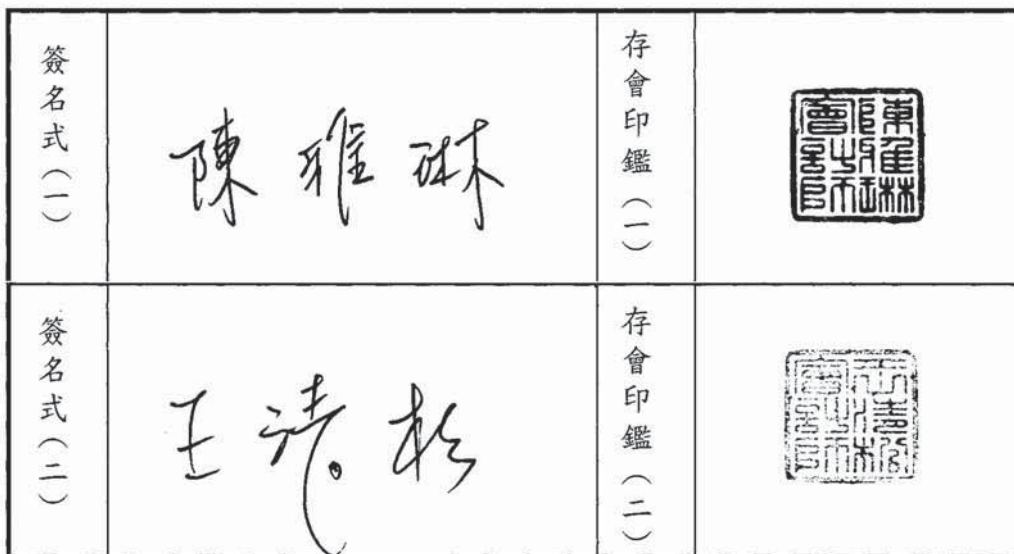 簽名式（一）
陳雅琳
存會印鑑（一）
陳雅琳
會計師
簽名式（二）
王清松
存會印鑑（二）
王清松
會計師